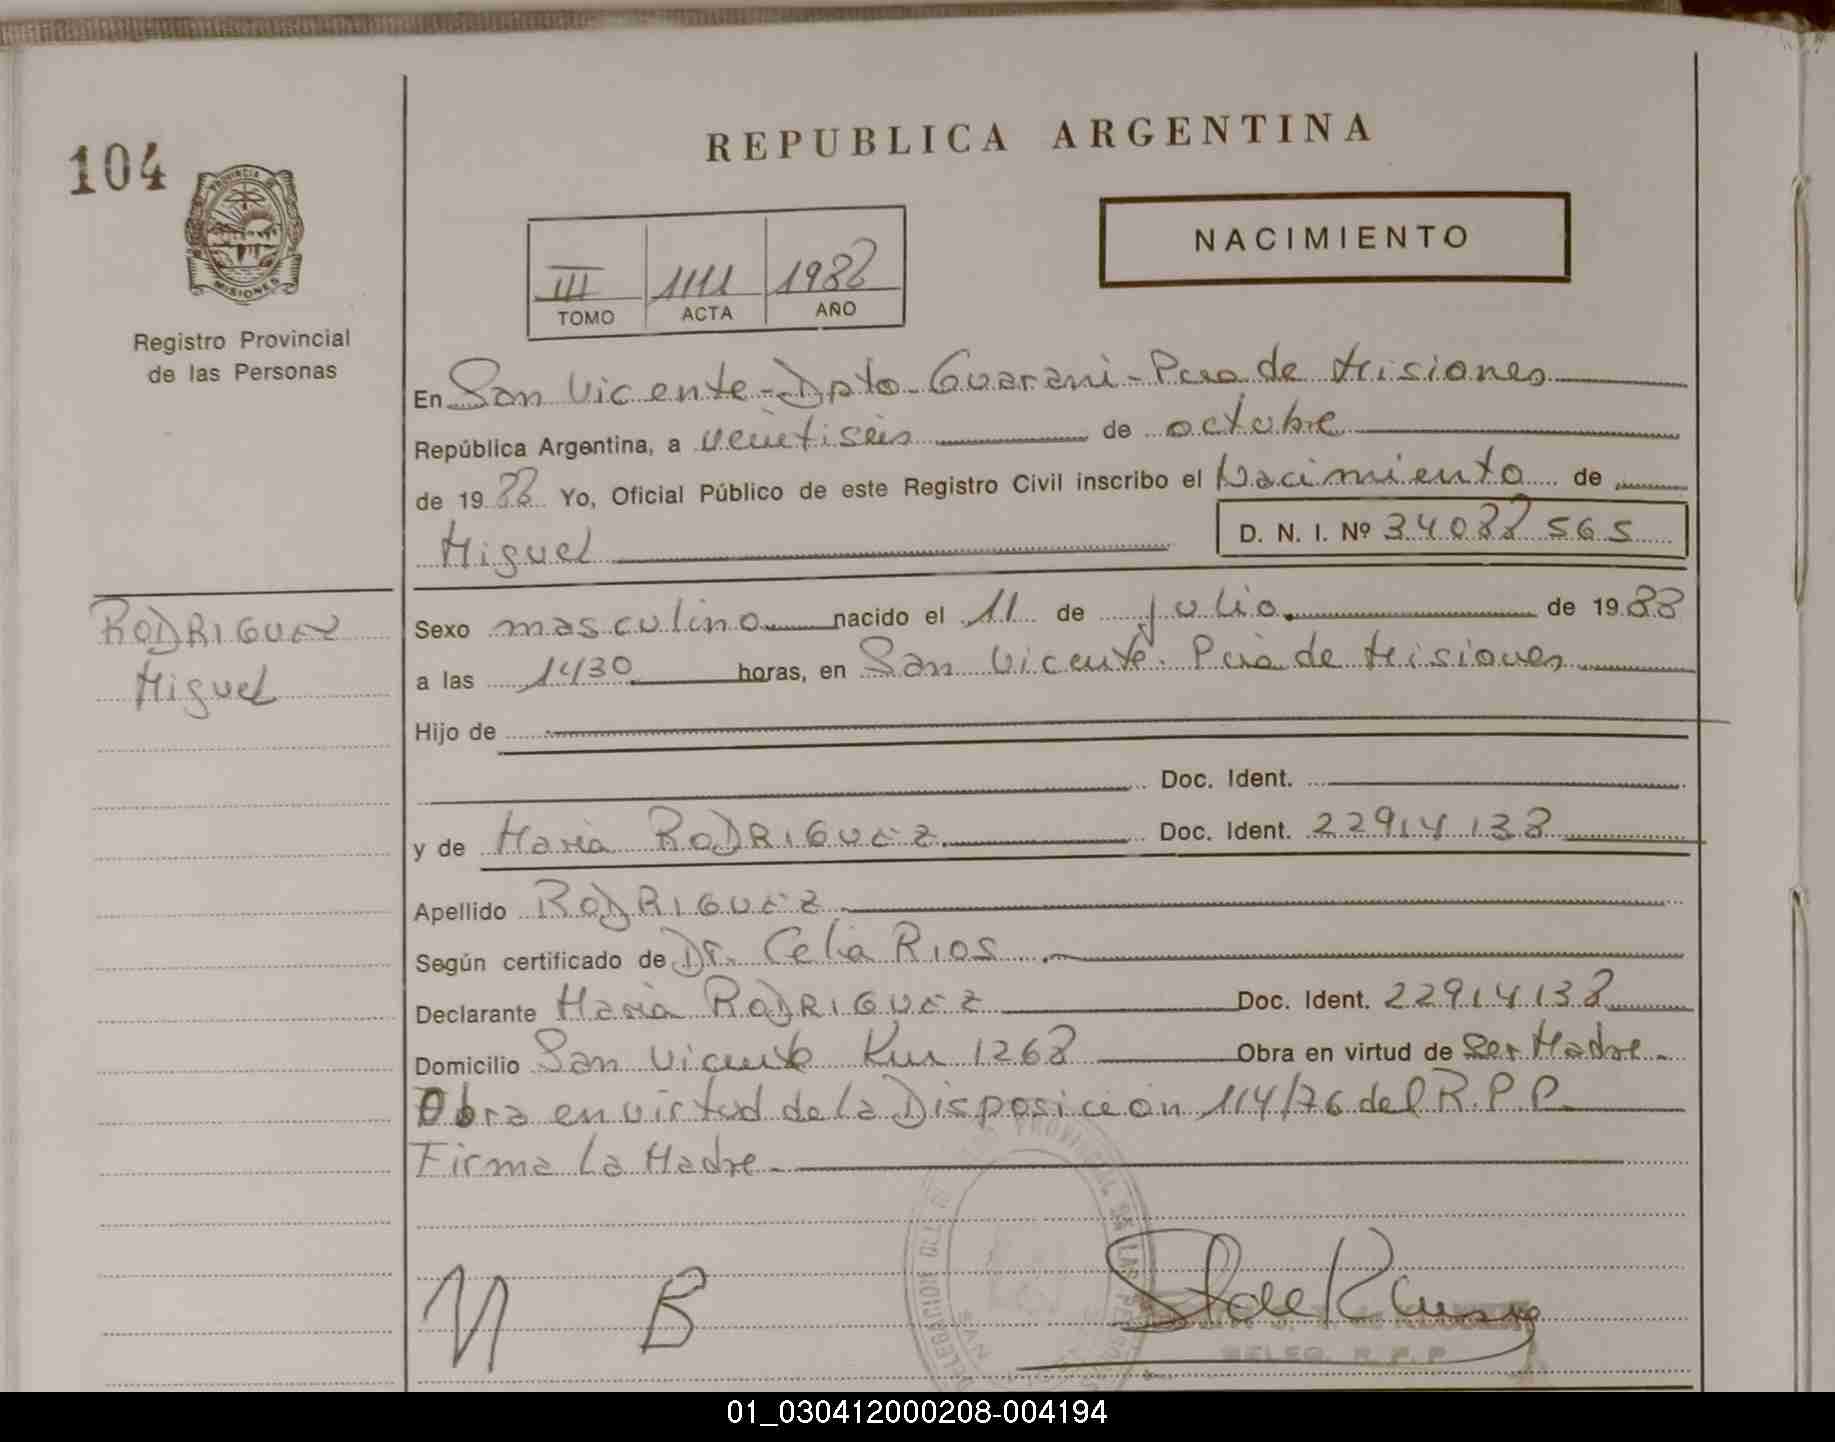 104
PROVINCIA DE
MISIONES
Registro Provincial
de las Personas
REPUBLICA ARGENTINA
NACIMIENTO
III 1111 1988
TOMO ACTA AÑO
En San Vicente - Dpto Guarani - Pcia de Misiones
República Argentina, a veintiseis de octubre
de 1988 Yo, Oficial Público de este Registro Civil inscribo el Nacimiento de
Miguel D. N. I. Nº 34088565
RODRIGUEZ
Miguel
Sexo masculino nacido el 11 de julio de 1988
a las 1430 horas, en San Vicente. Pcia de Misiones
Hijo de
Doc. Ident.
y de Maria RODRIGUEZ Doc. Ident. 22914138
Apellido RODRIGUEZ
Según certificado de Dr. Celia RIOS
Declarante Maria RODRIGUEZ Doc. Ident. 22914138
Domicilio San Vicente Km 1268 Obra en virtud de Ser Madre.
Obra en virtud de la Disposición 114/76 del R.P.P.
Firma La Madre.
PROVINCIAL DE LAS PER
DELEGACION
DELEG. R.P.P
01_030412000208-004194